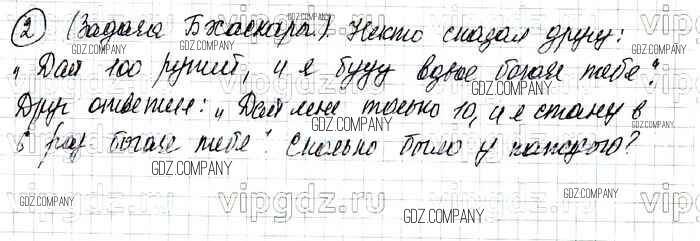 ② (Задача Бхаскары). Некто сказал другу:
„Дай 100 рупий, и я буду вдвое богаче тебя“.
Друг ответил: „Дай мне только 10, и я стану в
6 раз богаче тебя“. Сколько было у каждого?
vipgdz.ru
GDZ.COMPANY
GDZ.COMPANY
GDZ.COMPANY
GDZ.COMPANY
GDZ.COMPANY
GDZ.COMPANY
GDZ.COMPANY
vipgdz.ru
vipgdz.ru
vipgdz.ru
GDZ.COMPANY
GDZ.COMPANY
GDZ.COMPANY